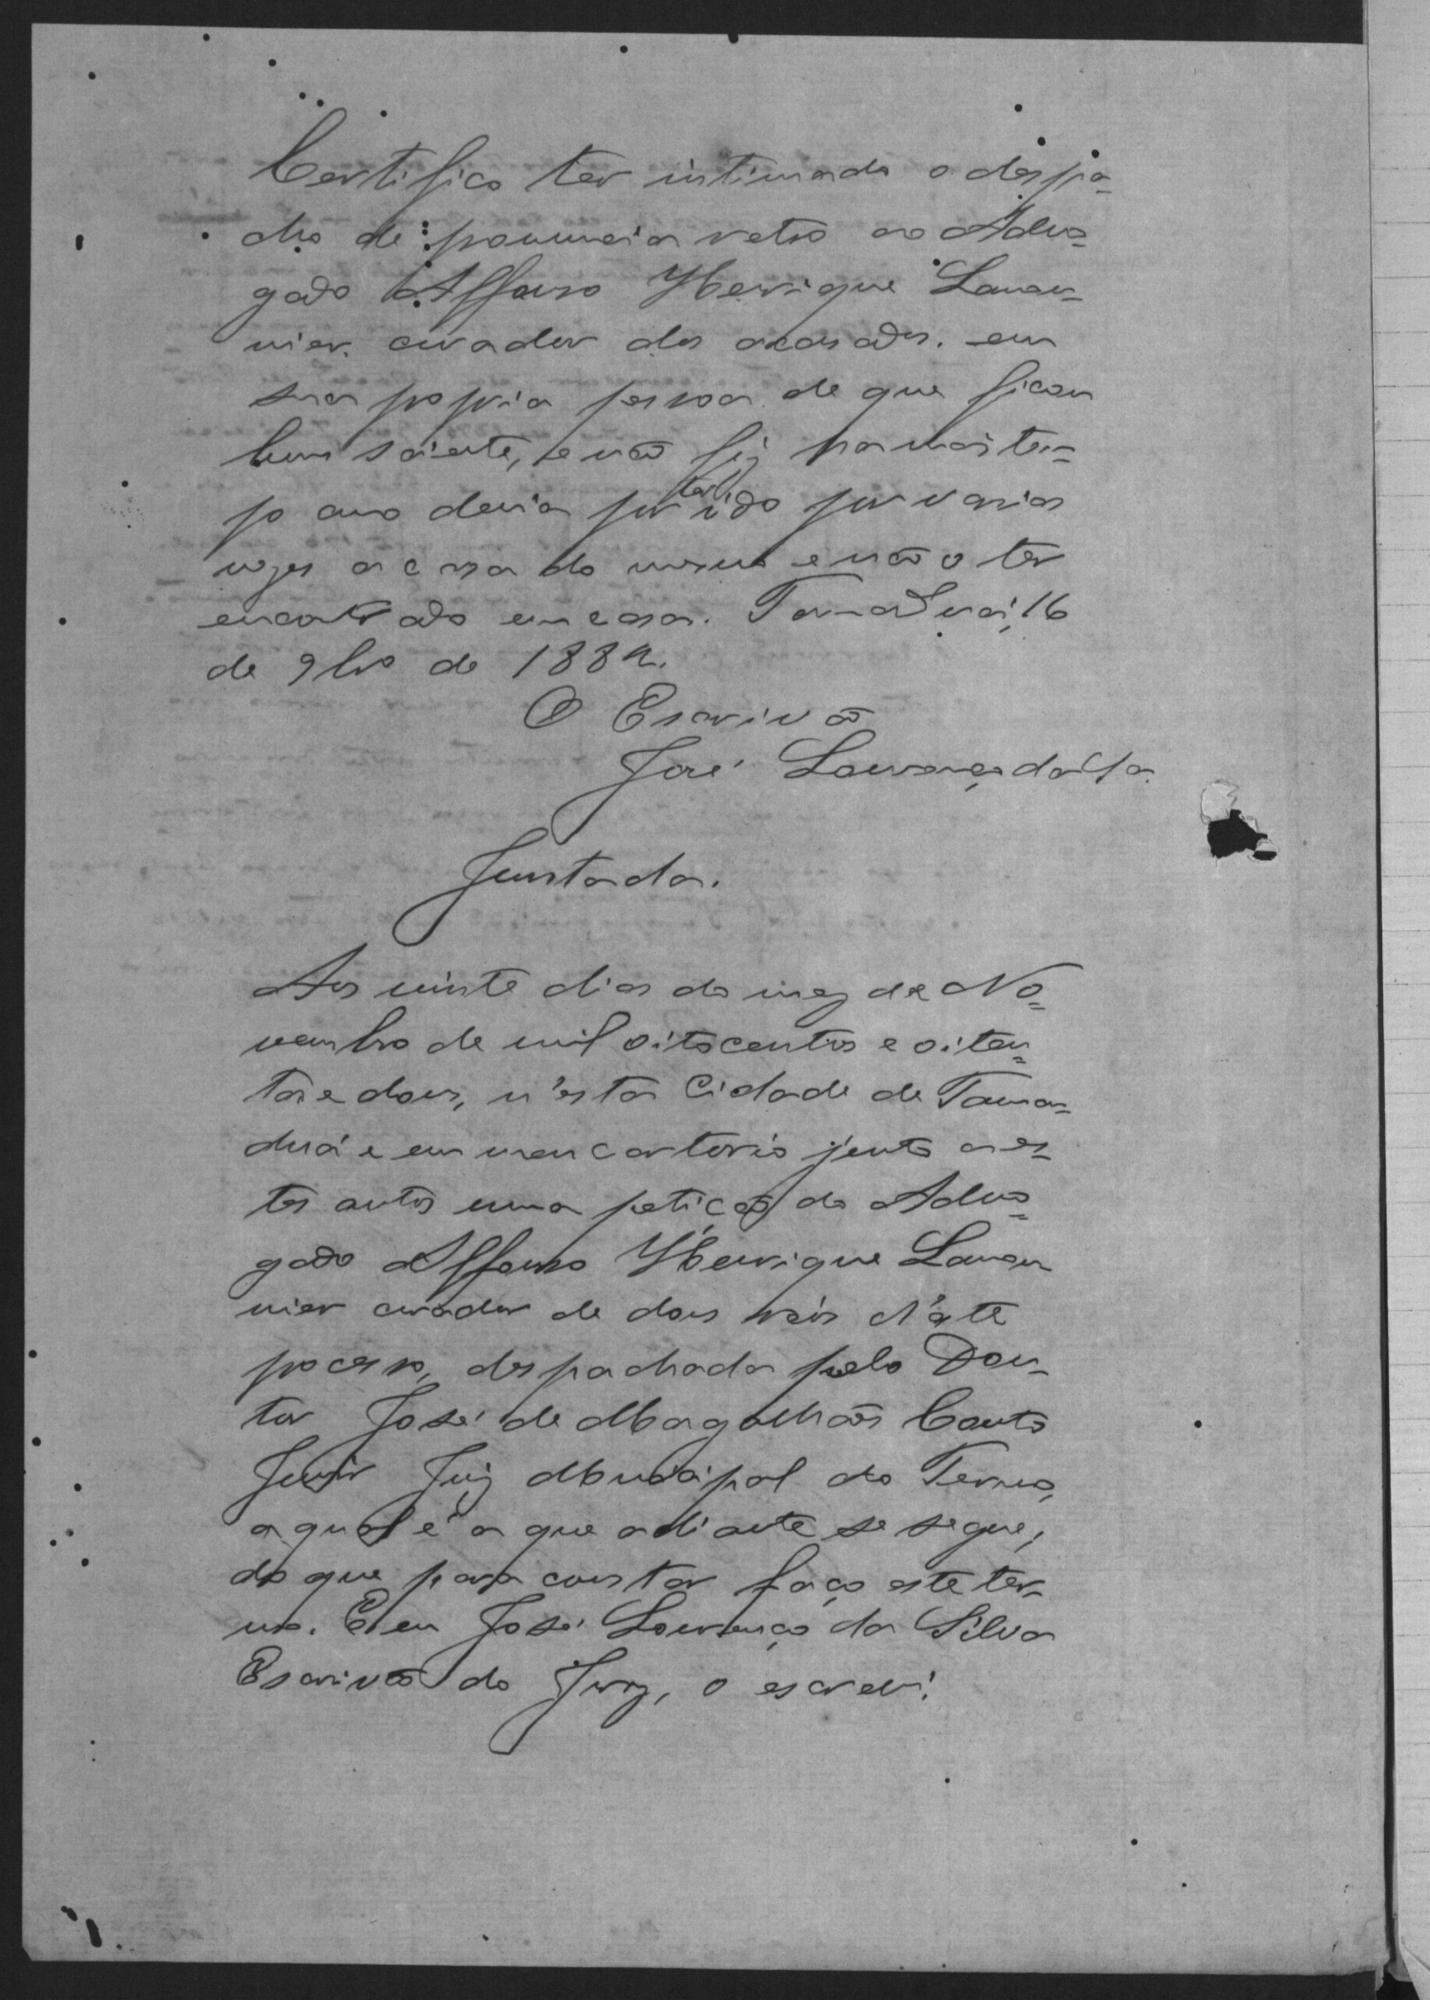 Certifico ter intimado o despa-
cho de pronuncia retro ao Advo-
gado Affonso Henrique Lavan-
nier. curador dos acusados. em
sua propria pessoa de que ficou
bem sciente, e não fiz
po como devia por ter ido por varias
vezes a casa do mesmo e não o ter
encontrado em casa. Tamanduá, 16
de 9bro de 1882.
O Escrivão
José Lourenço da Sa.
Juntada.
Aos vinte dias do mez de No-
vembro de mil oitocentos e oiten-
ta e dous, n'esta Cidade de Taman-
duá e em meu cartorio junto a es-
tes autos uma petição do Advo-
gado Affonso Henrique Lavan
nier curador de dous reós d'este
processo, despachada pelo Dou-
tor José de Magalhães Couto
Junior Juiz Municipal do Termo,
a qual é a que adiante se segue;
do que para constar faço este ter-
mo. E eu José Lourenço da Silva
Escrivão do Jury, o escrevi.